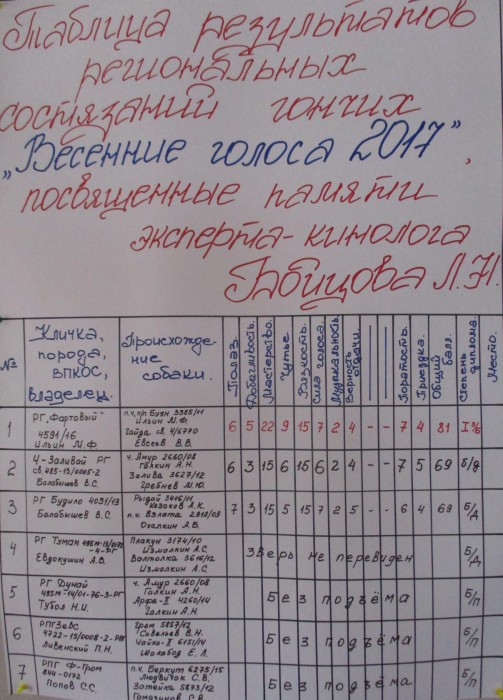 Таблица результатов
региональных
состязаний гончих
„Весенние голоса 2017",
посвященные памяти
эксперта-кинолога
Габицова Л.Н.
№ Кличка, порода, ВПКОС, владелец. Происхождение собаки. Полаз. Добычливость. Мастерство. Чутье. Вязкость. Сила голоса. Музыкальность. Верность отдачи. Паратость. Приездка. Общий балл. Степень диплома. Место.
1 РГ „Фартовый" п.ч. п/п Буян 3385/11 6 5 22 9 15 7 2 4 - - 7 4 81 I
4591/16 Ильин М.Ф.
Ильин М.Ф. Гайда св. 4/6770
Евсеев В.В.
2 Ч-Заливой РГ ч. Амур 2660/08 6 3 15 6 15 6 2 4 - - 7 5 69 б/д
св. 485-15/0005-2 Голкин А.Н.
Балабышев В.С. Заливка 3627/12
Гребнев М.Ю.
3 РГ Будило 4031/13 Рыдай 3446/11 7 3 15 5 15 7 2 5 - - 6 4 69 Б/Д
Балабышев В.С. Казаков А.К.
п.ч. Взлата 2918/09
Охалкин А.Б.
4 РГ Туман Плакун 3174/10 Зверь не перевиден Б/Д
4-РГ Измалкин А.С.
Евдокушин А.В. Болтолка 3616/12
Измалкин А.С.
5 РГ Дунай ч. Амур 2660/08 Без подъёма Б/П
485М-14/01-76-3-РГ Голкин А.Н.
Тубол Н.И. Арфа-II 4260/14
Голкин А.Н.
6 РПГ Зевс Грем 5857/12 Без подъёма Б/П
4722-15/0008-2-РПГ Савельев В.Н.
Ливенский П.Н. Чайка-II 6151/14
Шалабод Е.Л.
7 РПГ Ф-Гром п.ч. Беркут 6275/15 Без подъёма Б/П
844-0172 Людвичак С.В.
Попов С.С. Затейка 5873/12